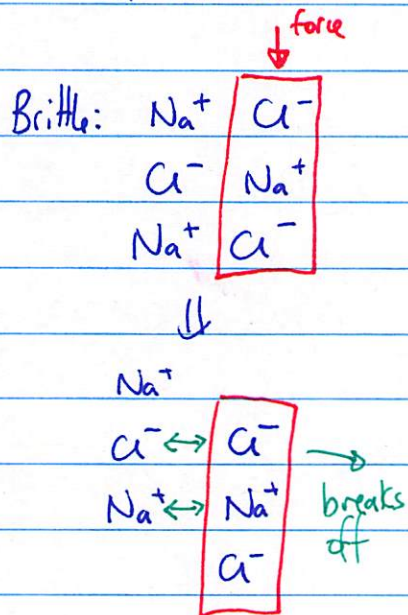 ↓ force
Brittle: Na⁺ Cl⁻
Cl⁻ Na⁺
Na⁺ Cl⁻
⇓
Na⁺
Cl⁻ ↔ Cl⁻ →
Na⁺ ↔ Na⁺ breaks
Cl⁻ off